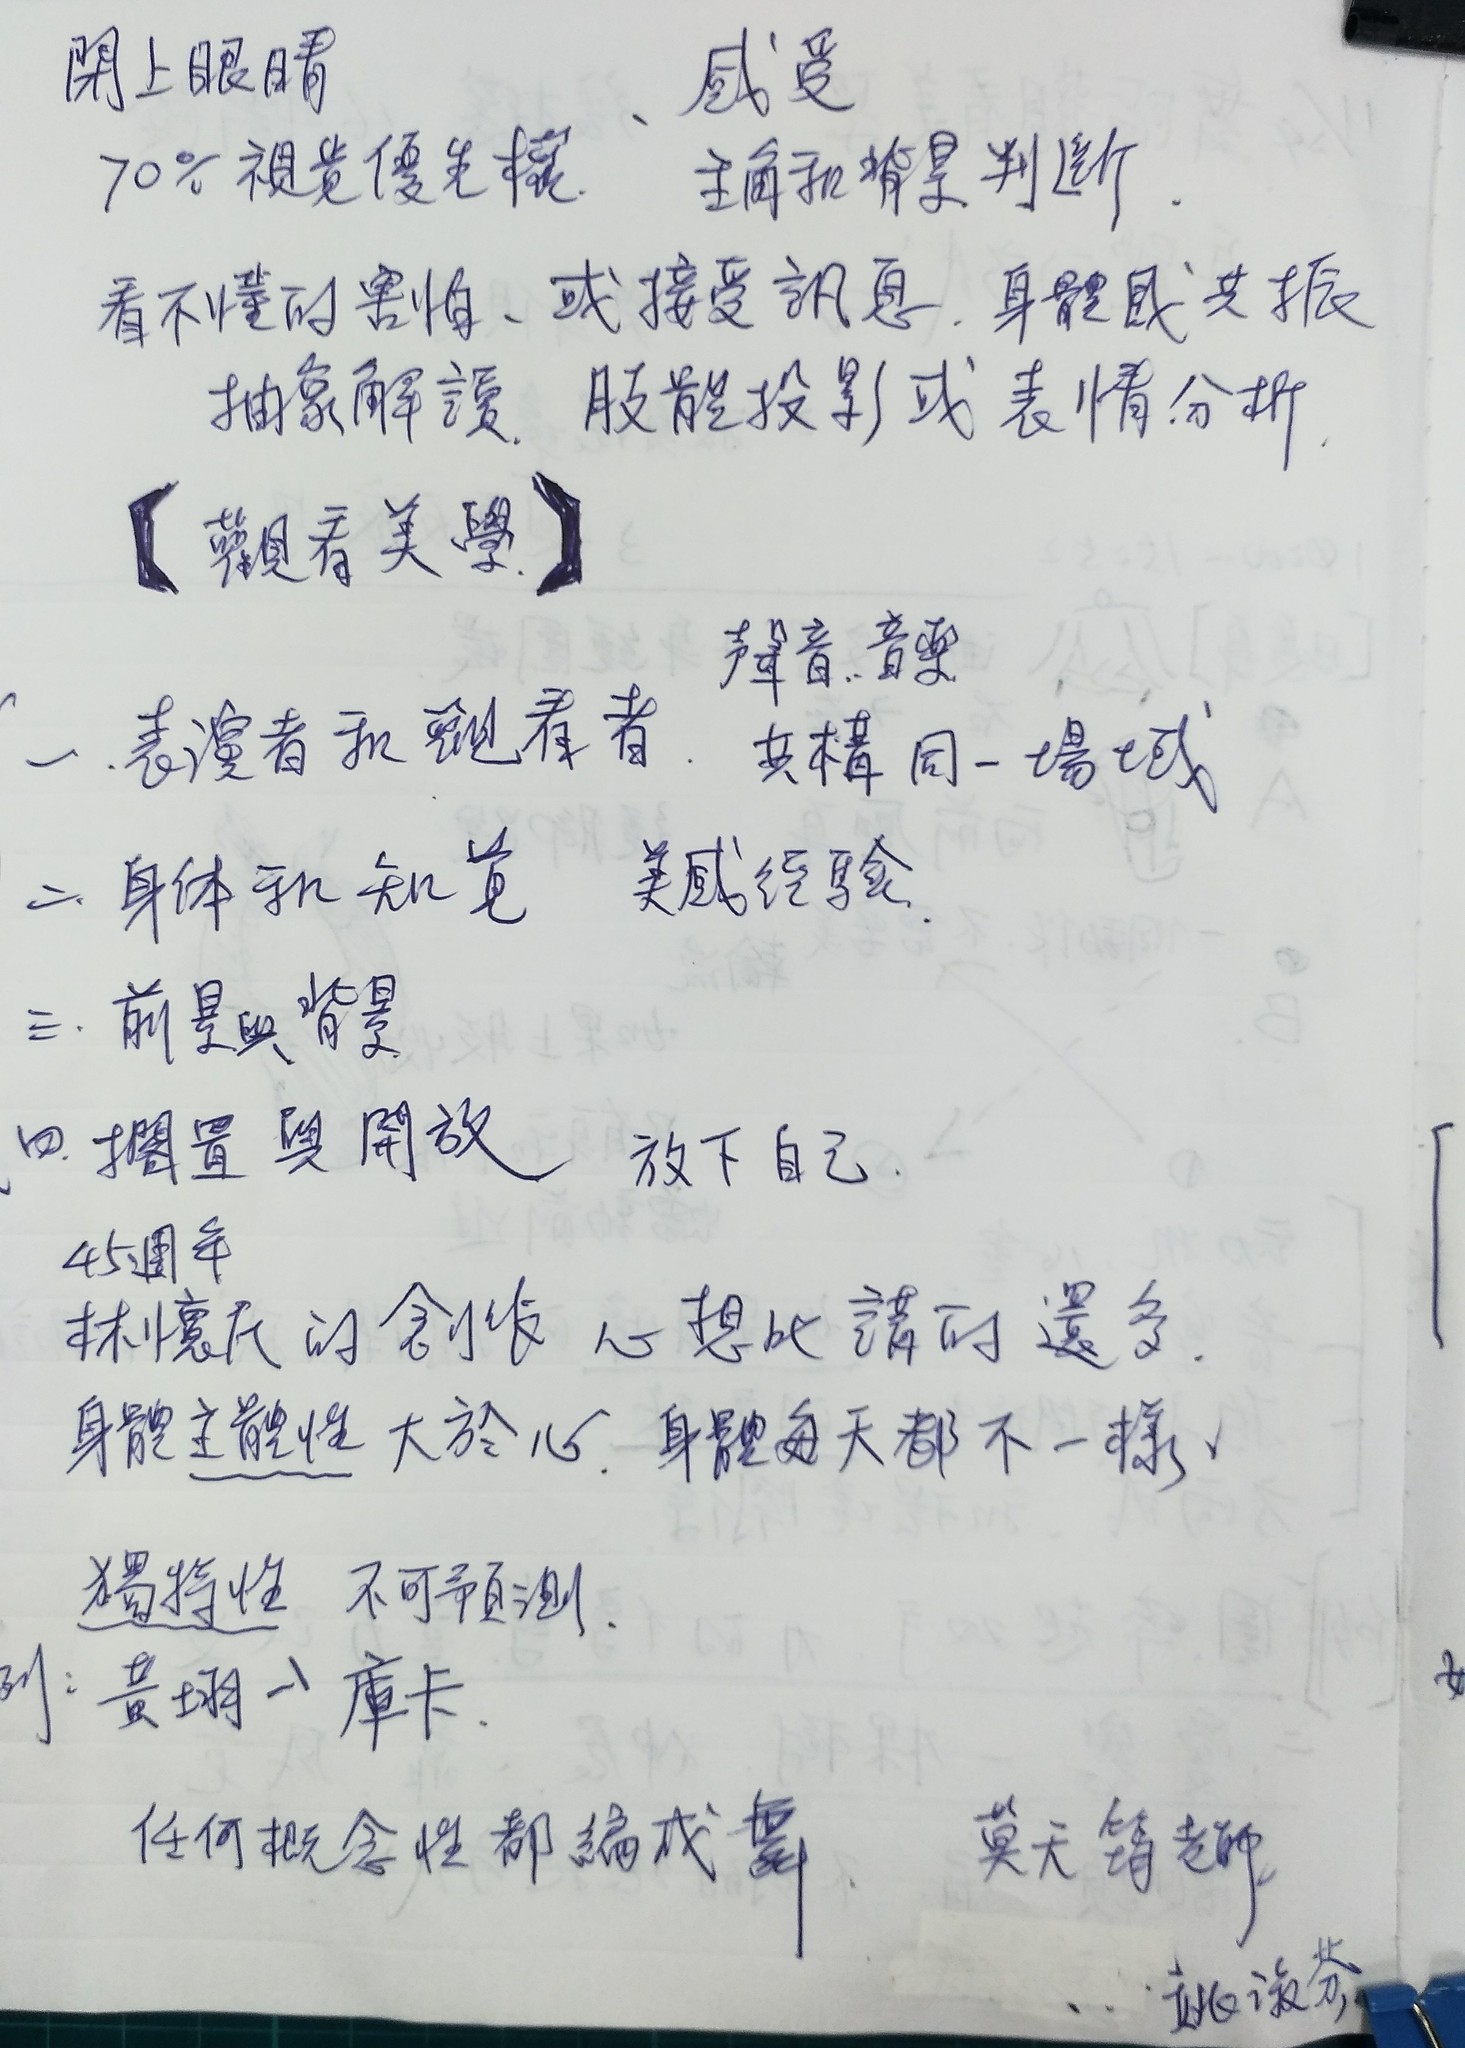 閉上眼睛、感受
70% 視覺優先權. 主角和背景判斷.
看不懂的害怕、或接受訊息. 身體感共振
抽象解讀. 肢體投影或表情分析.
【觀看美學.】
聲音.音樂
一.表演者和觀看者. 共構同一場域
二.身体和知覚 美感経験.
三.前景與背景
四.擱置與開放 放下自己.
45週年
林懷民的創作 心想比講的還多.
身體主體性大於心. 身體每天都不一樣、
獨特性 不可預測.
例:黃翊 庫卡.
任何概念性都編成舞. 莫天筠老師
姚淑芬